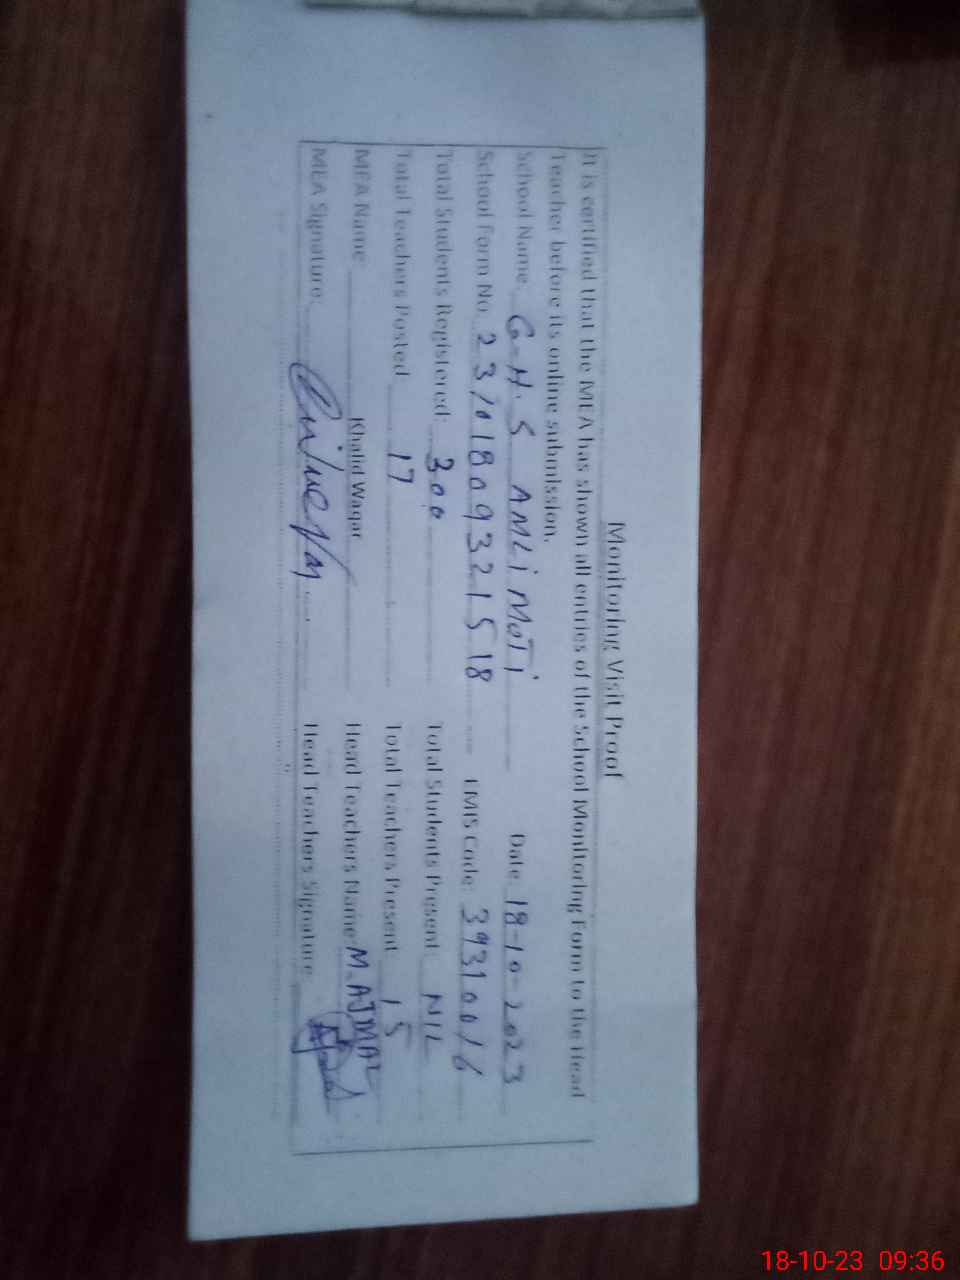 Monitoring Visit Proof
It is certified that the MEA has shown all entries of the School Monitoring Form to the Head
Teacher before its online submission.
School Name: G.H.S AMLi MoTi Date: 18-10-2023
School Form No. 23101809321518 EMIS Code: 39310016
Total Students Registered: 300 Total Students Present: NIL
Total Teachers Posted 17 Total Teachers Present 15
MEA Name: Khalid Waqar Head Teachers Name: M.AJMAL
MEA Signature: Head Teachers Signature:
18-10-23 09:36